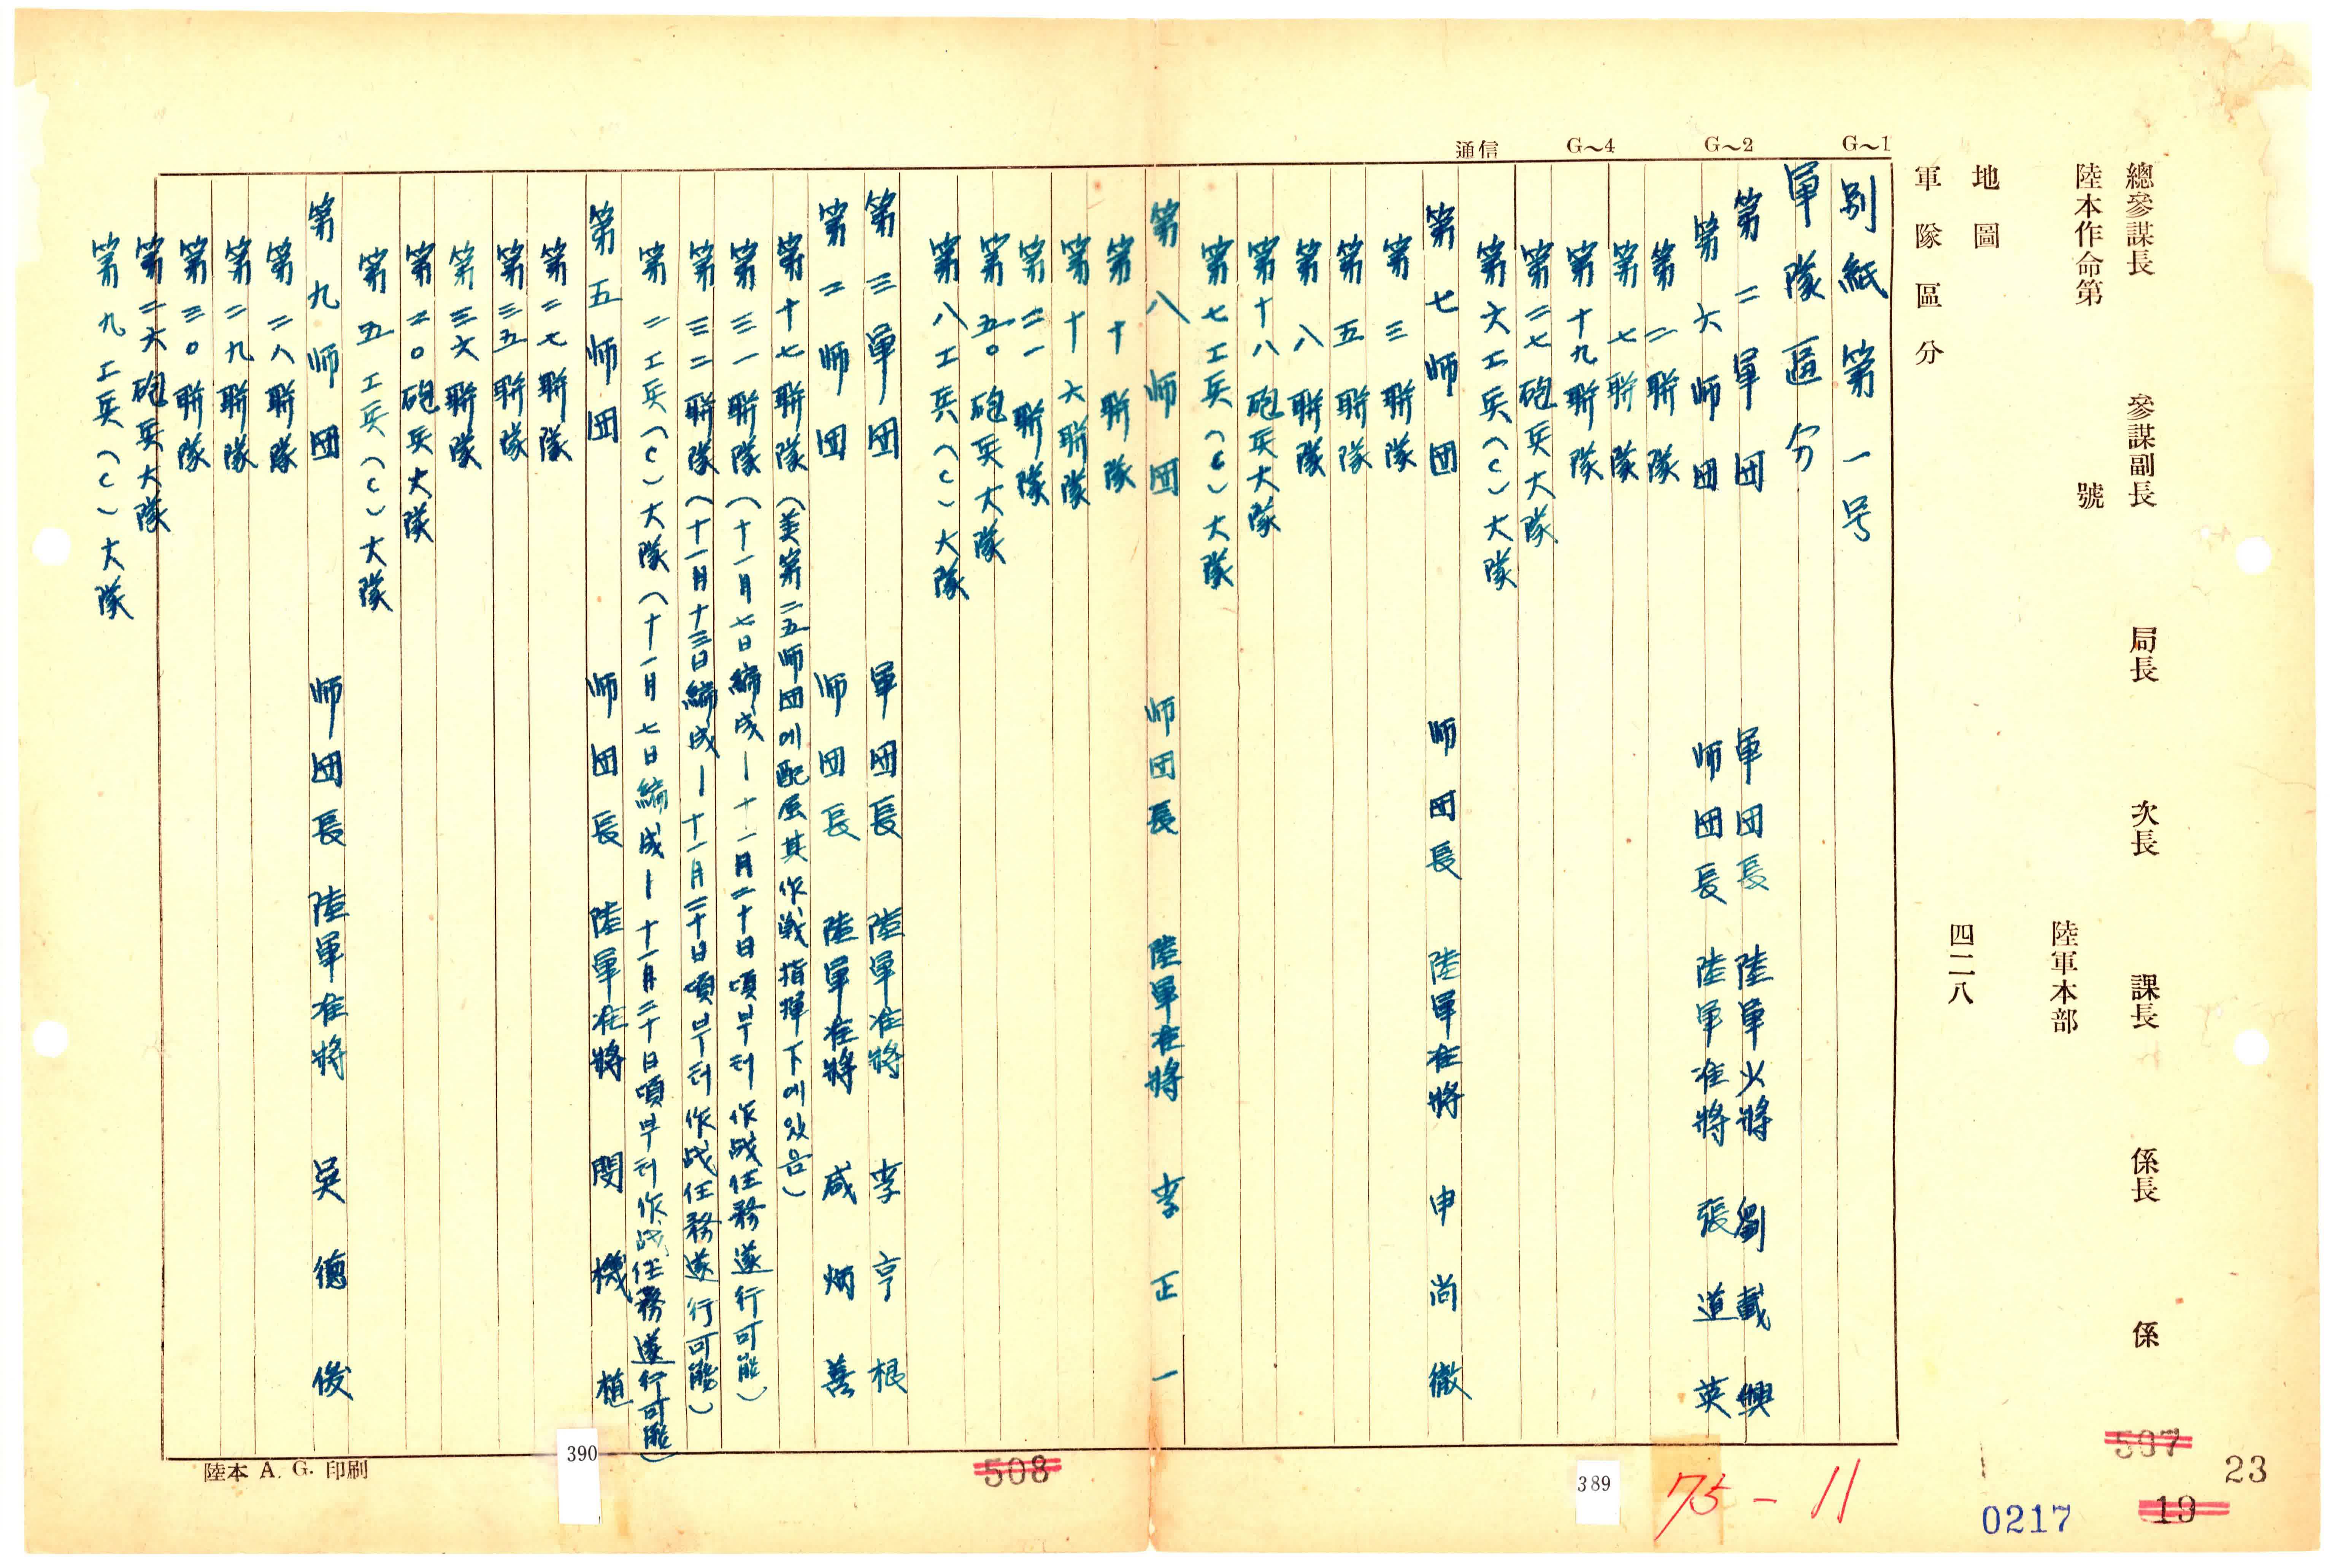 總參謀長 參謀副長 局長 次長 課長 係長 係
陸本作命第 號
陸軍本部
地圖
四二八
軍隊區分
G～1
G～2
G～4
通信
別紙第一号
軍隊區分
第二軍団 軍団長 陸軍少將 劉載興
第六师団 师団長 陸軍准將 張道英
第二聯隊
第七聯隊
第十九聯隊
第二七砲兵大隊
第六工兵(C)大隊
第七师団 师団長 陸軍准將 申尚徹
第三聯隊
第五聯隊
第八聯隊
第十八砲兵大隊
第七工兵(C)大隊
第八师団 师団長 陸軍准將 李正一
第十聯隊
第十六聯隊
第二一聯隊
第五〇砲兵大隊
第八工兵(C)大隊
第三軍団 軍団長 陸軍准將 李亨根
第二师団 师団長 陸軍准將 咸炳善
第十七聯隊(美第二五师団에配属其作戦指揮下에있음)
第三一聯隊(十一月七日編成ー十一月二十日頃부터作战任務遂行可能)
第三二聯隊(十一月十三日編成ー十一月二十日頃부터作战任務遂行可能)
第二工兵(C)大隊(十一月七日編成ー十一月二十日頃부터作战任務遂行可能)
第五师団 师団長 陸軍准將 閔機植
第二七聯隊
第三五聯隊
第三六聯隊
第二〇砲兵大隊
第五工兵(C)大隊
第九师団 师団長 陸軍准將 吳德俊
第二八聯隊
第二九聯隊
第三〇聯隊
第二六砲兵大隊
第九工兵(C)大隊
陸本 A. G. 印刷
390
508
389
75-11
507
23
0217
19